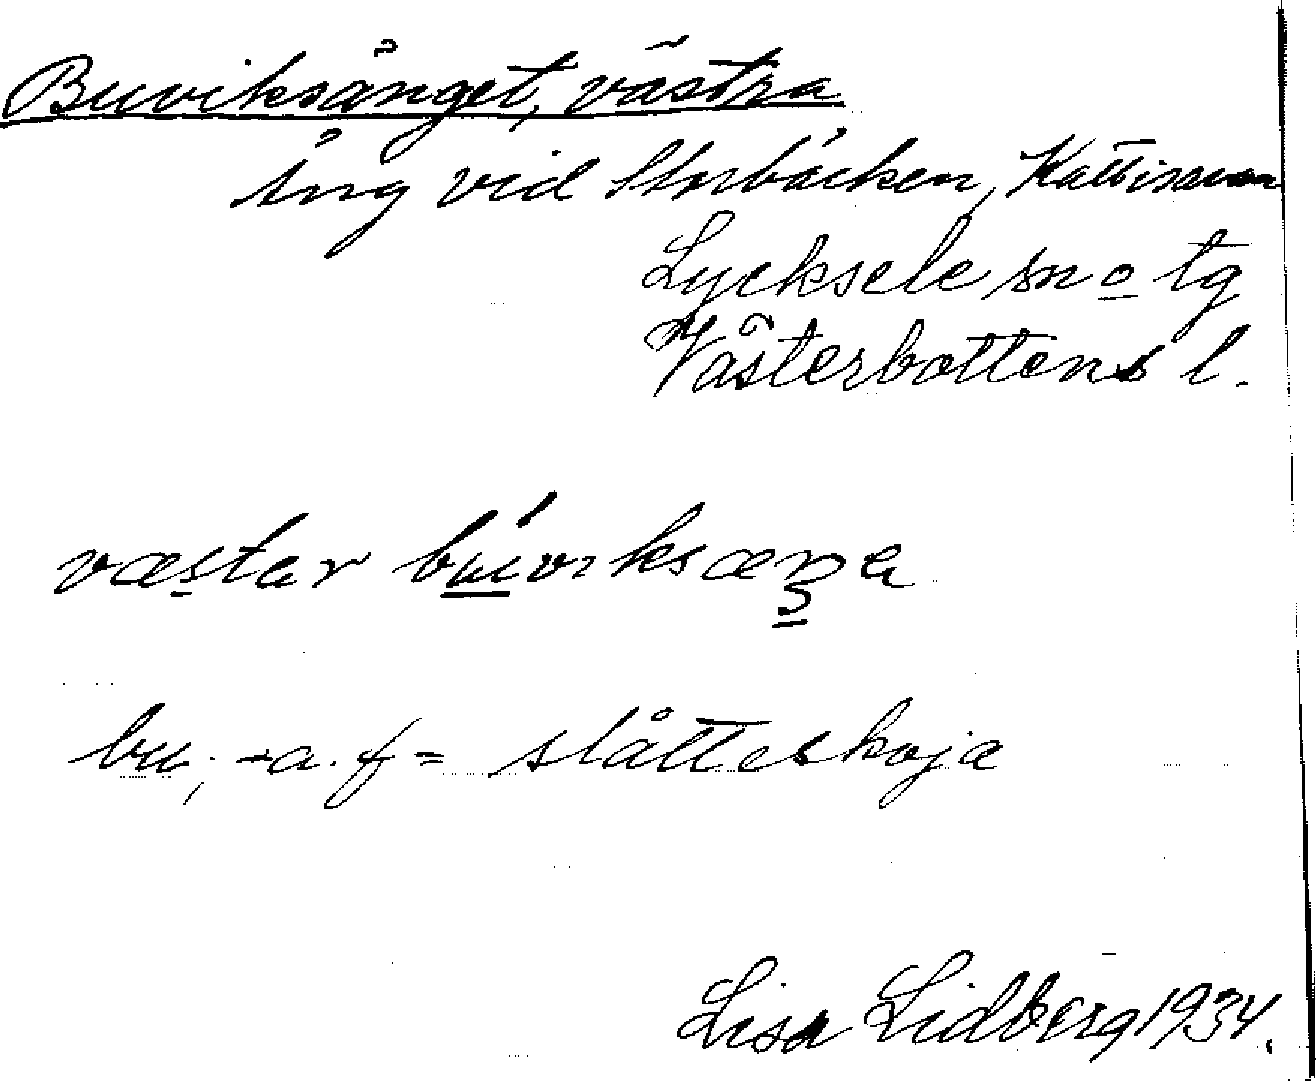 Buviksänget, västra
äng vid Storbäcken, Kattisavan
Lycksele sn o tg
Västerbottens l.
væstar buvıksæŋa
bu, -a. f = slåtteskoja
Lisa Lidberg 1934.